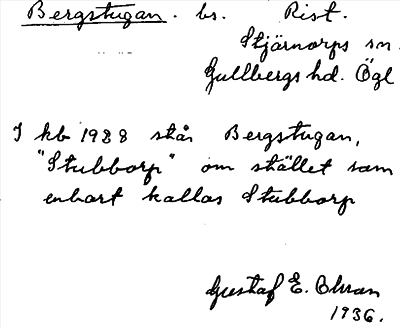 Bergstugan. bs. Rist.
Stjärnorps sn.
Gullbergs hd. Ögl
I kb 1928 står Bergstugan,
"Stubborp" om stället som
enbart kallas Stubborp
Gustaf E. Ohran
1936.